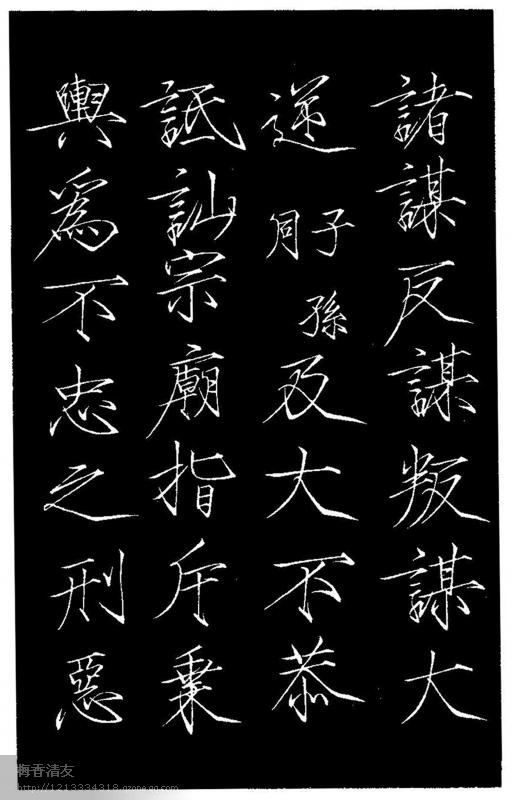 諸謀反謀叛謀大
逆子孫同及大不恭
詆訕宗廟指斥乗
輿為不忠之刑惡
梅香清友
http://1213334318.qzone.qq.com